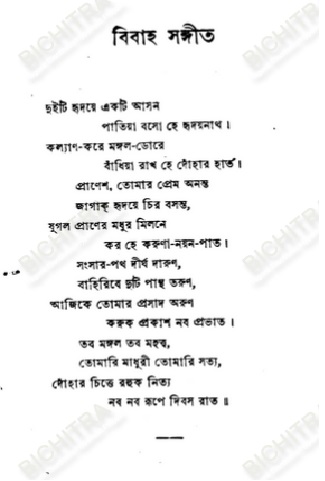 বিবাহ সঙ্গীত
দুইটি হৃদয়ে একটি আসন
পাতিয়া বসো হে হৃদয়নাথ।
কল্যাণ-করে মঙ্গল-ডোরে
বাঁধিয়া রাখ হে দোঁহার হাত॥
প্রাণেশ, তোমার প্রেম অনন্ত
জাগাক্ হৃদয়ে চির বসন্ত,
যুগল প্রাণের মধুর মিলনে
কর হে করুণা-নয়ন-পাত।
সংসার-পথ দীর্ঘ দারুণ,
বাহিরিবে দুটি পান্থ তরুণ,
আজিকে তোমার প্রসাদ অরুণ
করুক্ প্রকাশ নব প্রভাত।
তব মঙ্গল তব মহত্ত্ব,
তোমারি মাধুরী তোমারি সত্য,
দোঁহার চিত্তে রহুক নিত্য
নব নব রূপে দিবস রাত॥
BICHITRA